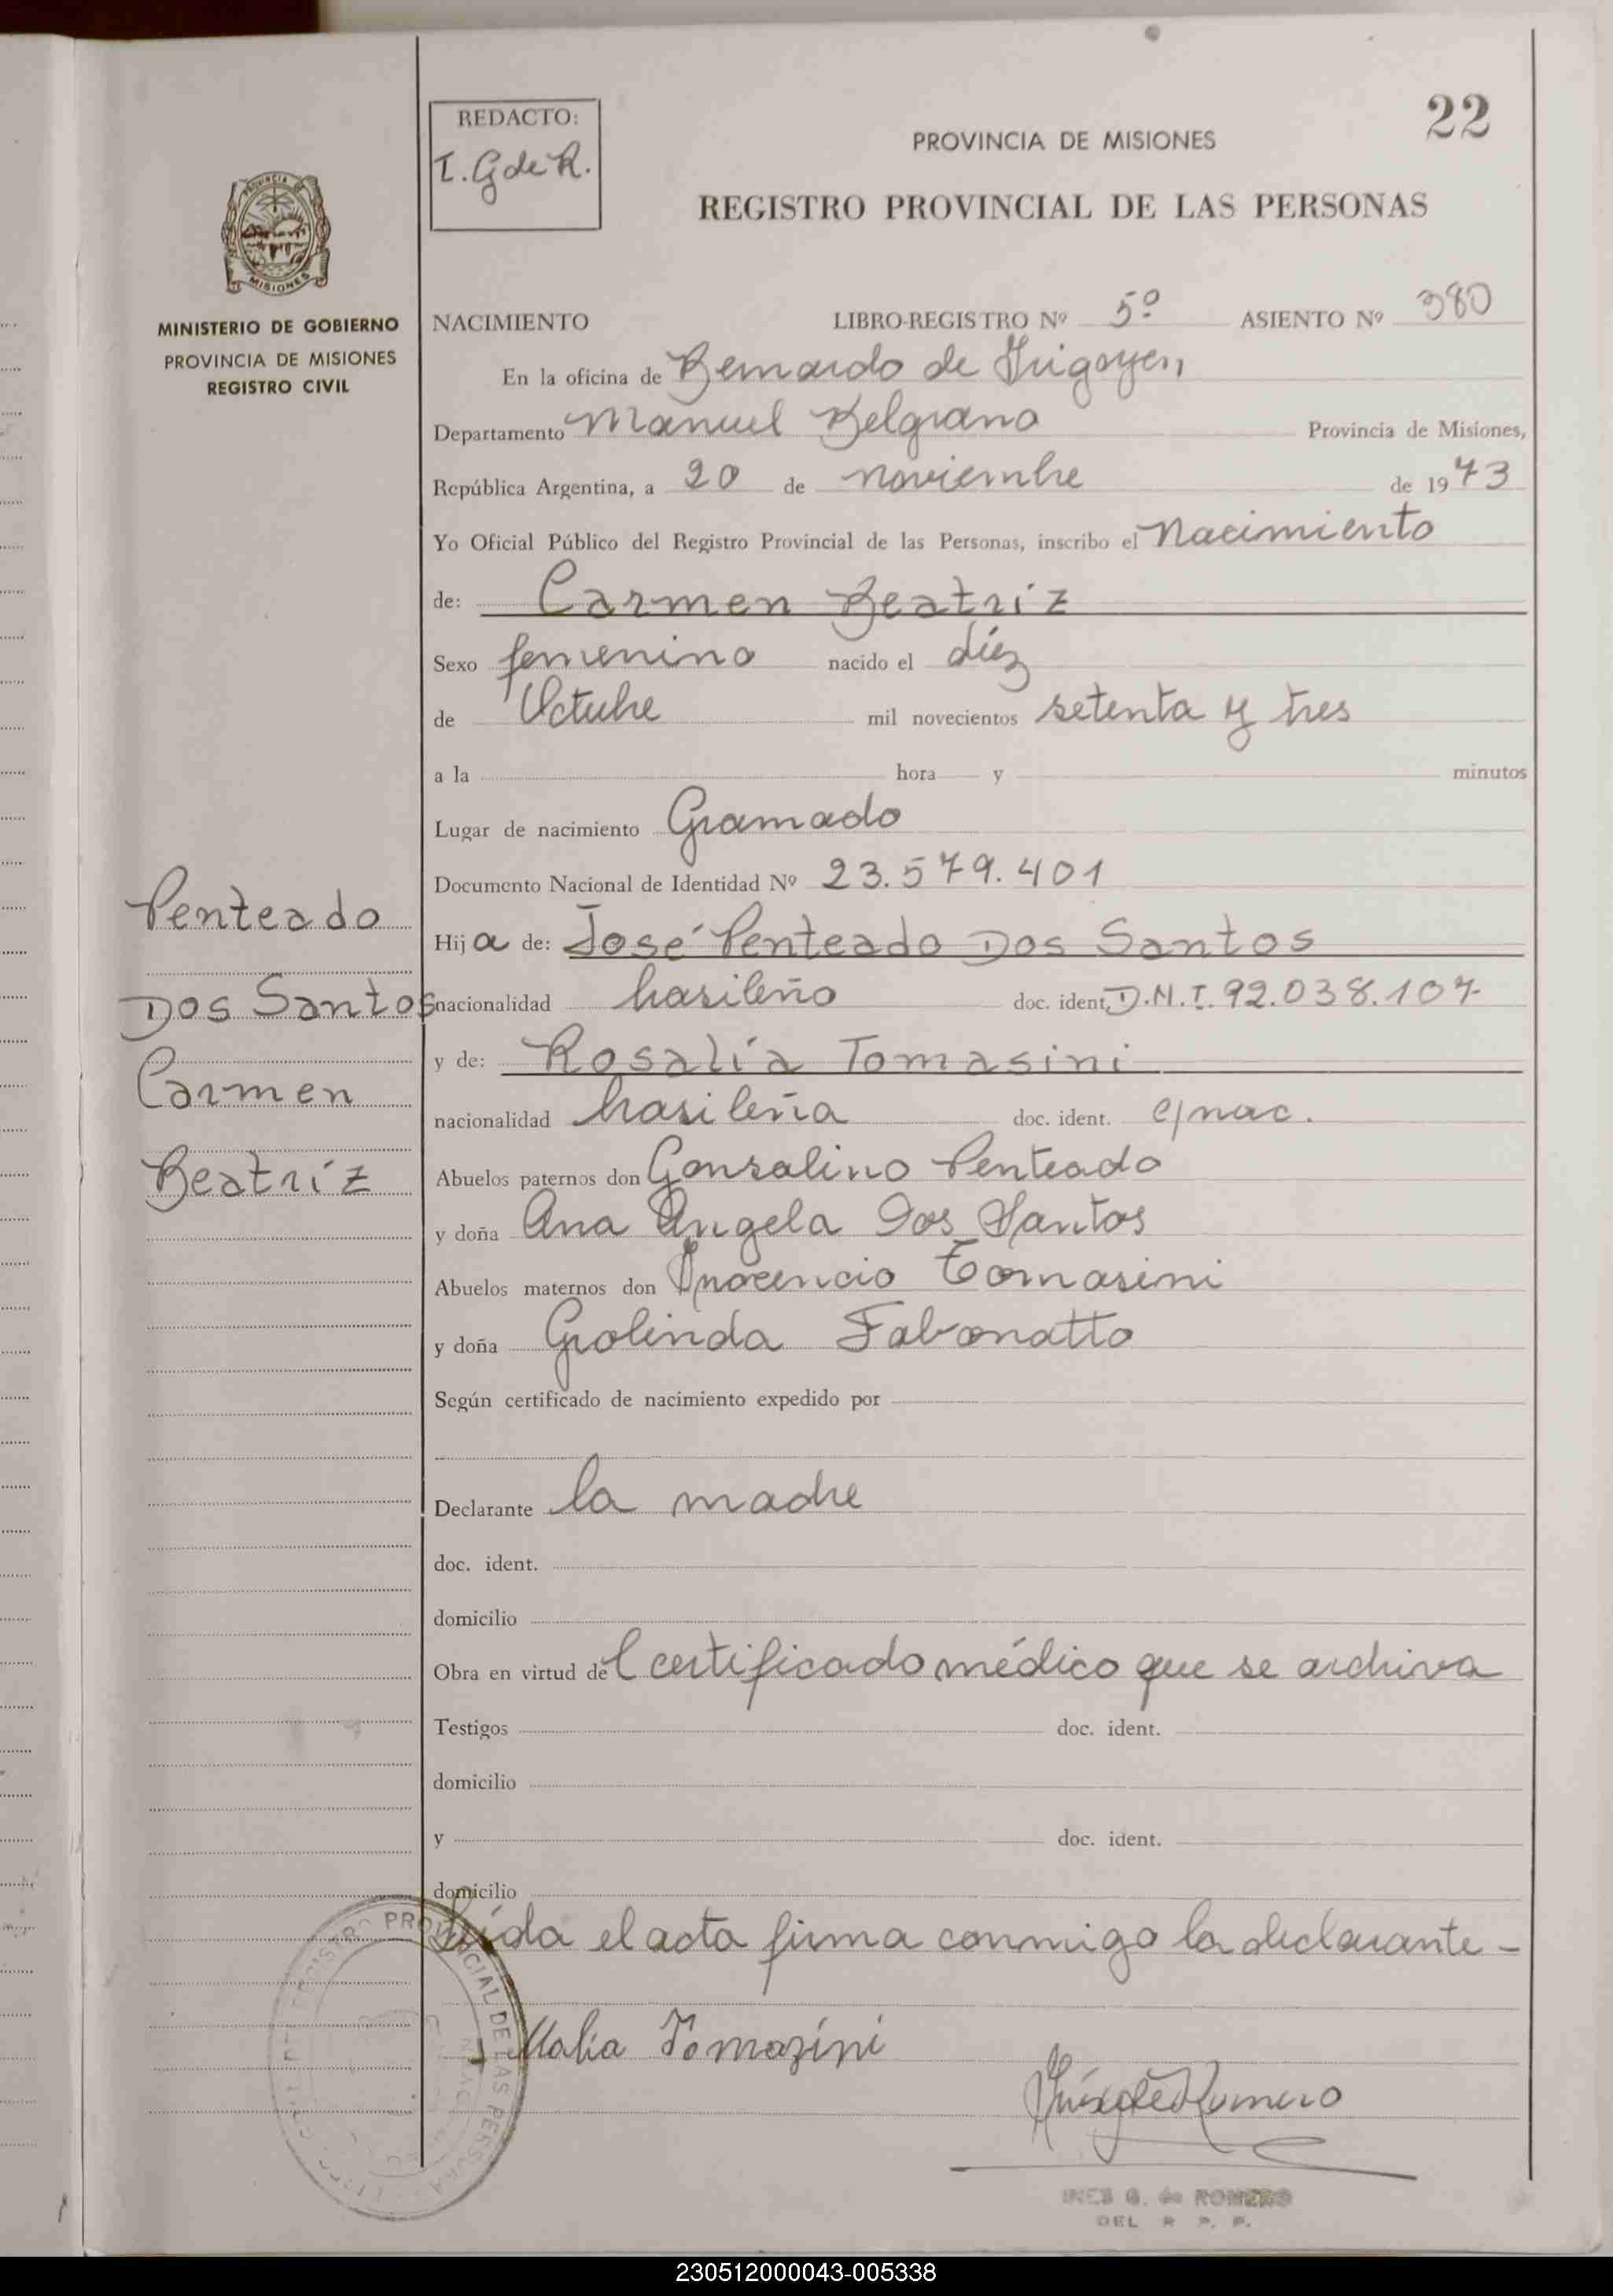 22
REDACTO:
I. G de R.
PROVINCIA DE MISIONES
REGISTRO PROVINCIAL DE LAS PERSONAS
PROVINCIA DE
MISIONES
MINISTERIO DE GOBIERNO
PROVINCIA DE MISIONES
REGISTRO CIVIL
NACIMIENTO LIBRO-REGISTRO Nº 5º ASIENTO Nº 380
En la oficina de Bernardo de Irigoyen
Departamento Manuel Belgrano Provincia de Misiones,
República Argentina, a 20 de noviembre de 1973
Yo Oficial Público del Registro Provincial de las Personas, inscribo el Nacimiento
de: Carmen Beatríz
Sexo femenino nacido el diéz
de Octubre mil novecientos setenta y tres
a la hora y minutos
Lugar de nacimiento Gramado
Documento Nacional de Identidad Nº 23.579.401
Penteado
Hija de: José Penteado Dos Santos
Dos Santos
nacionalidad brasileño doc. ident. D.N.I. 92.038.107
y de: Rosalía Tomasini
Carmen
nacionalidad brasileña doc. ident. c/nac.
Beatríz
Abuelos paternos don Gonsalino Penteado
y doña Ana Angela Dos Santos
Abuelos maternos don Inocencio Tomasini
y doña Grolinda Fabonatto
Según certificado de nacimiento expedido por
Declarante la madre
doc. ident.
domicilio
Obra en virtud del certificado médico que se archiva
Testigos doc. ident.
domicilio
y doc. ident.
domicilio
Leída el acta firma conmigo la declarante -
REGISTRO PROVINCIAL DE LAS PERSONAS
Tomazini
Inés G de Romero
INES G. de ROMERO
DEL R. P. P.
230512000043-005338